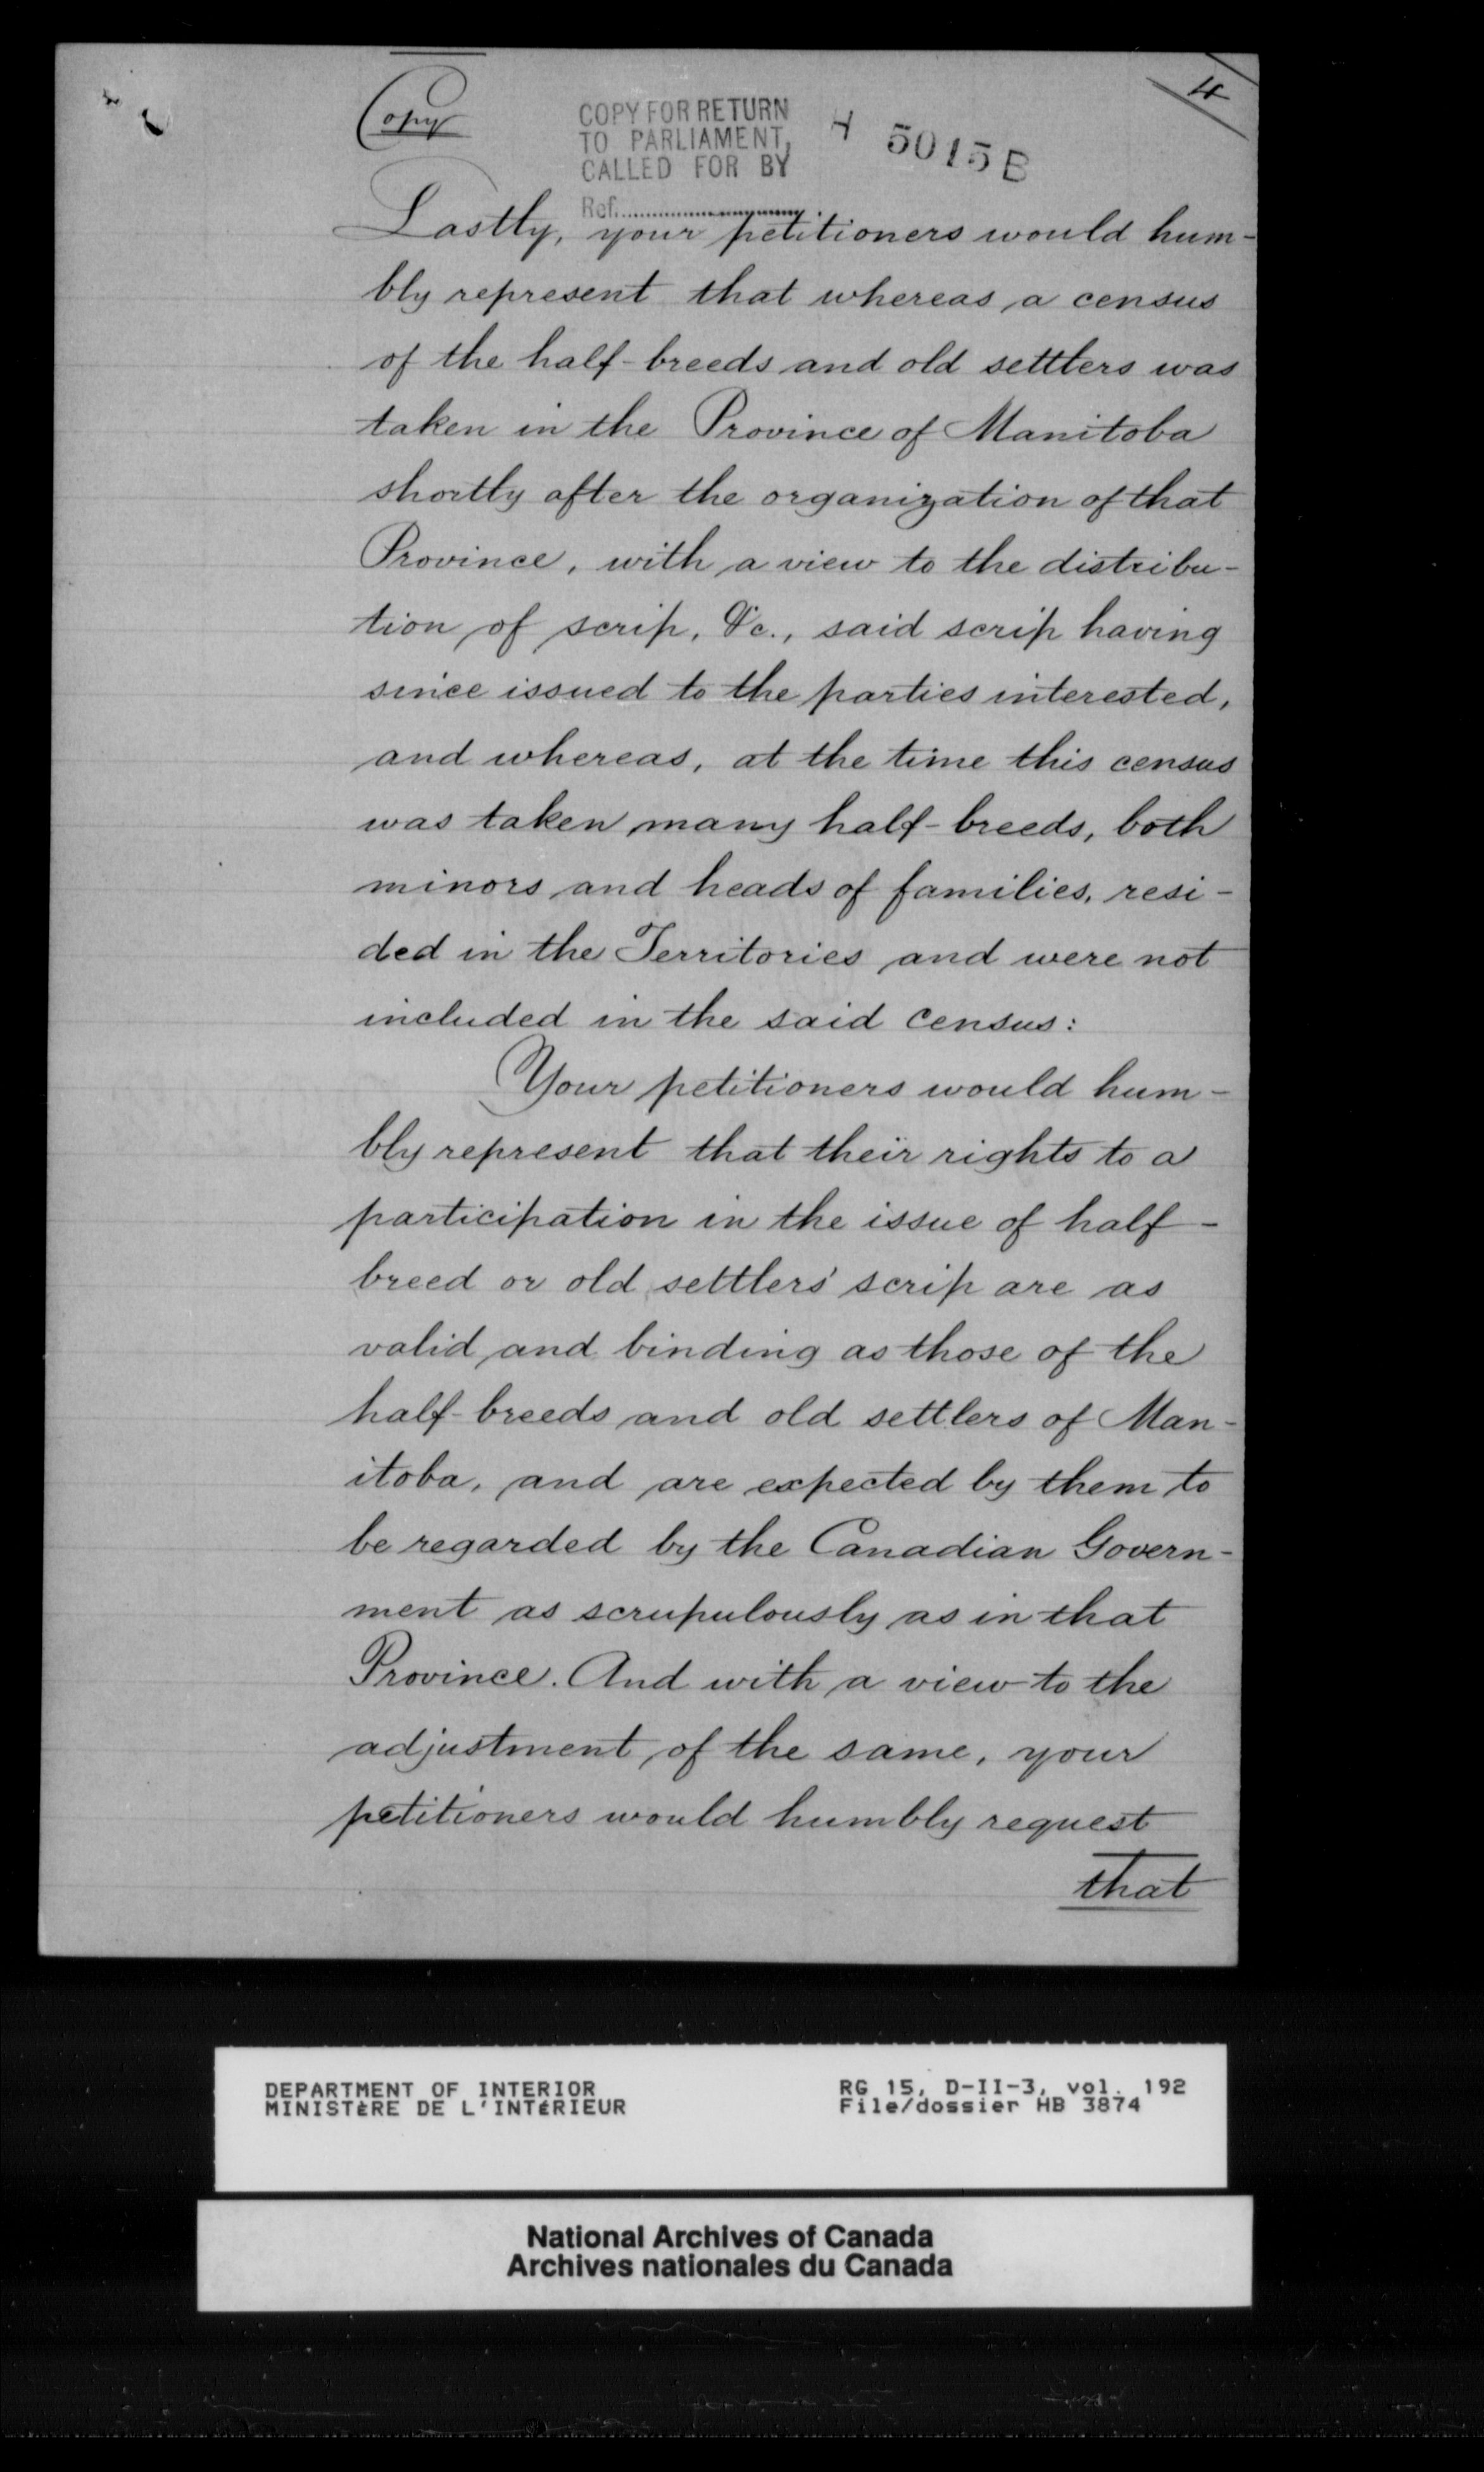 4
Copy
COPY FOR RETURN
TO PARLIAMENT,
CALLED FOR BY
Ref.
H 5015 B
Lastly, your petitioners would hum-
bly represent that whereas a census
of the half-breeds and old settlers was
taken in the Province of Manitoba
shortly after the organization of that
Province, with a view to the distribu-
tion of scrip, &c., said scrip having
since issued to the parties interested,
and whereas, at the time this census
was taken many half-breeds, both
minors and heads of families, resi-
ded in the Territories and were not
included in the said census:
Your petitioners would hum-
bly represent that their rights to a
participation in the issue of half-
breed or old settlers' scrip are as
valid and binding as those of the
half-breeds and old settlers of Man-
itoba, and are expected by them to
be regarded by the Canadian Govern-
ment as scrupulously as in that
Province. And with a view to the
adjustment of the same, your
petitioners would humbly request
that
DEPARTMENT OF INTERIOR
MINISTÈRE DE L'INTÉRIEUR
RG 15, D-II-3, vol. 192
File/dossier HB 3874
National Archives of Canada
Archives nationales du Canada